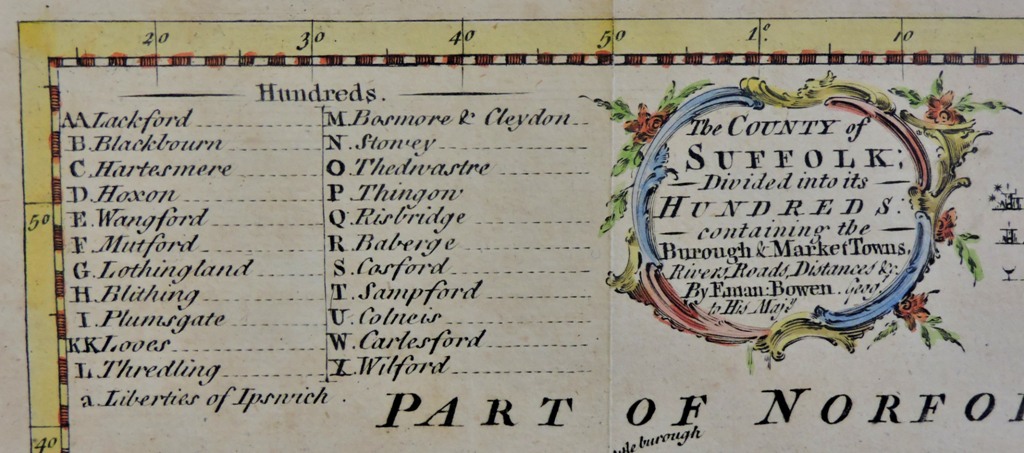 20 30 40 50 1° 10
Hundreds.
AA Lackford
B. Blackbourn
C. Hartesmere
D. Hoxon
E. Wangford
F. Mutford
G. Lothingland
H. Blithing
I. Plumsgate
KK Looes
L. Thredling
a. Liberties of Ipswich.
M. Bosmore & Cleydon
N. Stowey
O. Thedwastre
P. Thingow
Q. Risbridge
R. Baberge
S. Cosford
T. Sampford
U. Colneis
W. Carlesford
X. Wilford
The COUNTY of
SUFFOLK;
Divided into its
HUNDREDS.
containing the
Burough & Market Towns,
Rivers, Roads, Distances &c.
By Eman: Bowen Geogr
to His Majty
50
40
PART OF NORFO